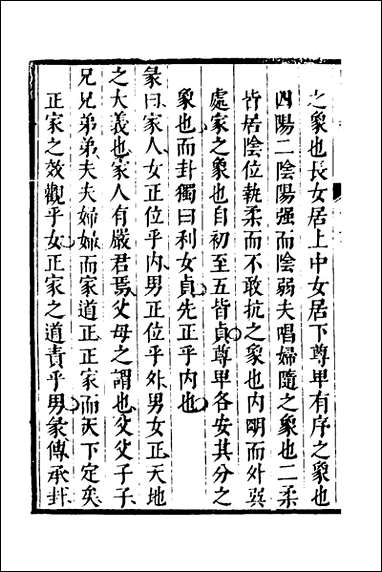 之象也長女居上中女居下尊卑有序之象也
四陽二陰陽强而陰弱夫唱婦隨之象也二柔
皆居陰位執柔而不敢抗之象也内明而外巽
處家之象也自初至五皆貞尊卑各安其分之
象也而卦獨曰利女貞先正乎内也
彖曰家人女正位乎内男正位乎外男女正天地
之大義也家人有嚴君焉父母之謂也父父子子
兄兄弟弟夫夫婦婦而家道正正家而天下定矣
正家之效觀乎女正家之道責乎男彖傳承卦